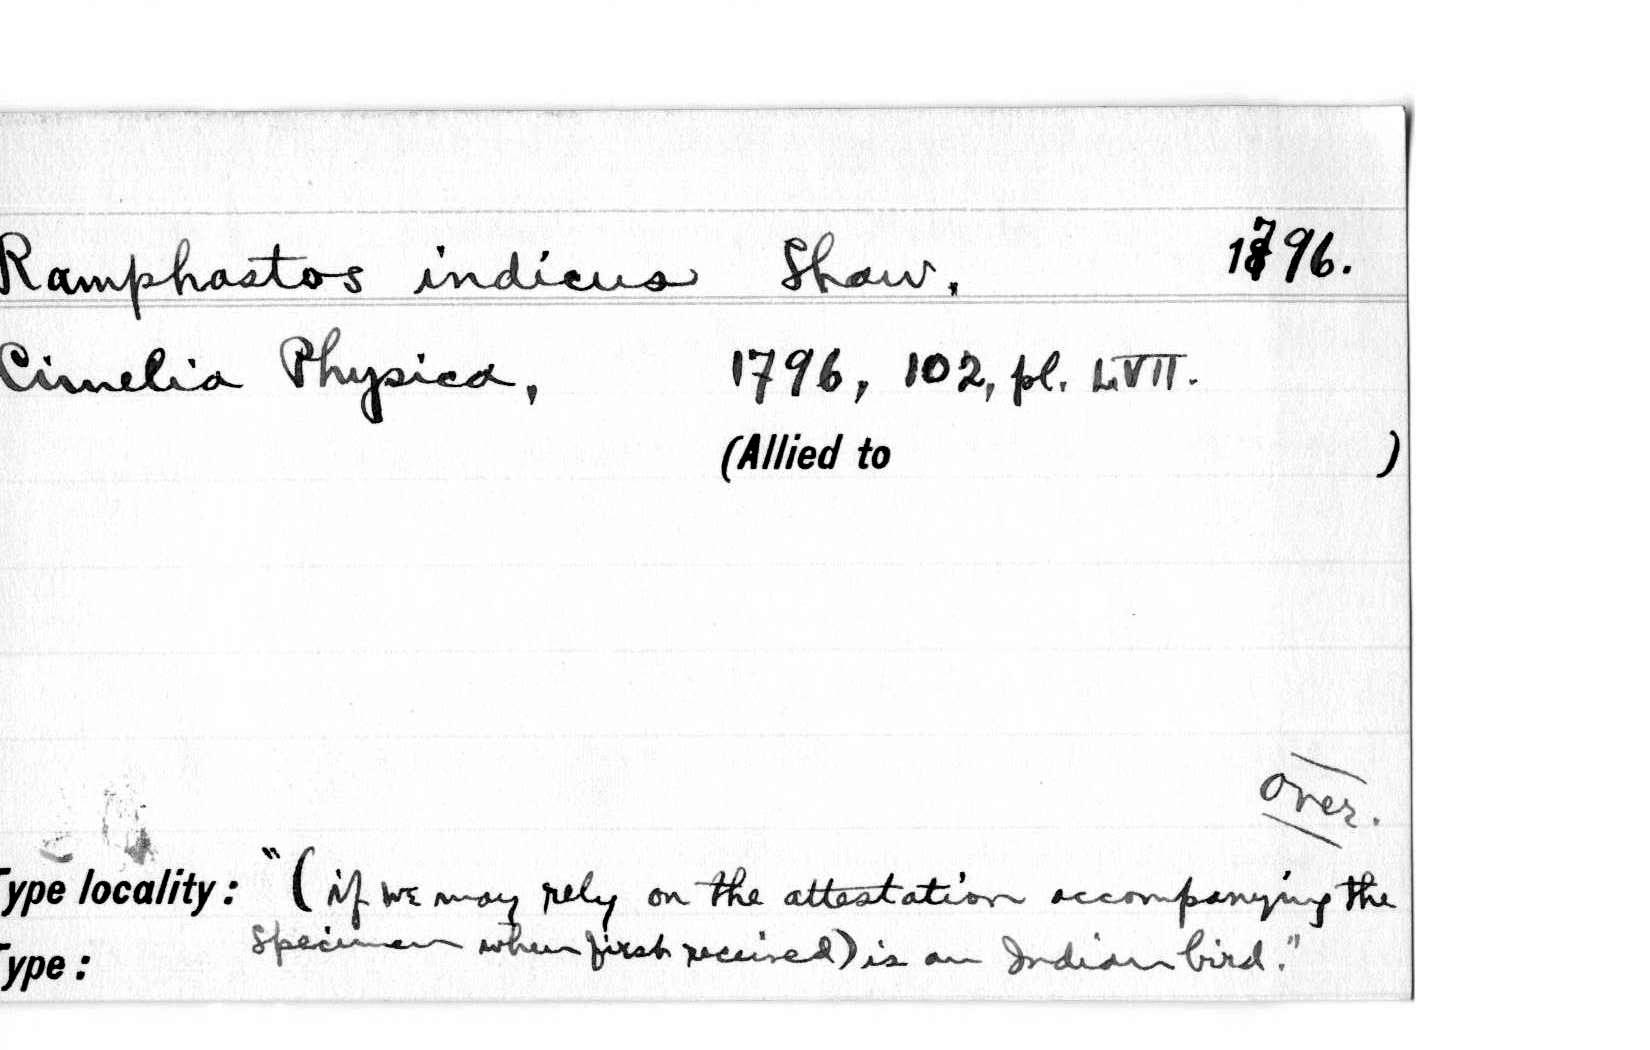 Ramphastos indicus Shaw. 1796.
Cimelia Physica, 1796, 102, pl. LVII.
(Allied to )
Over.
Type locality: "(if we may rely on the attestation accompanying the
specimen when first received) is an Indian bird."
Type: